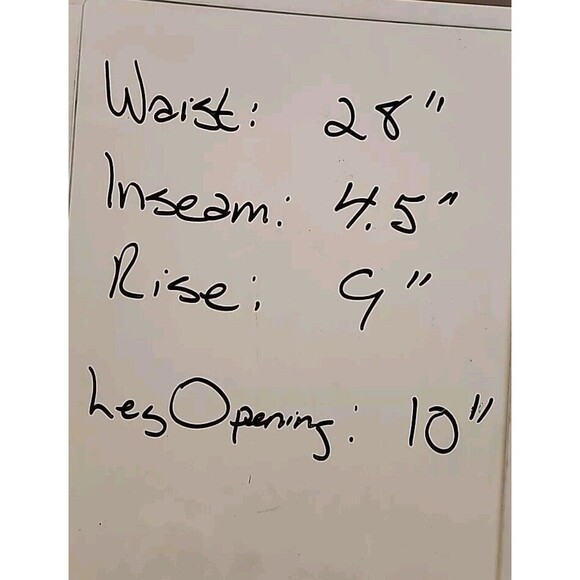 Waist: 28"
Inseam: 4.5"
Rise: 9"
Leg Opening: 10"